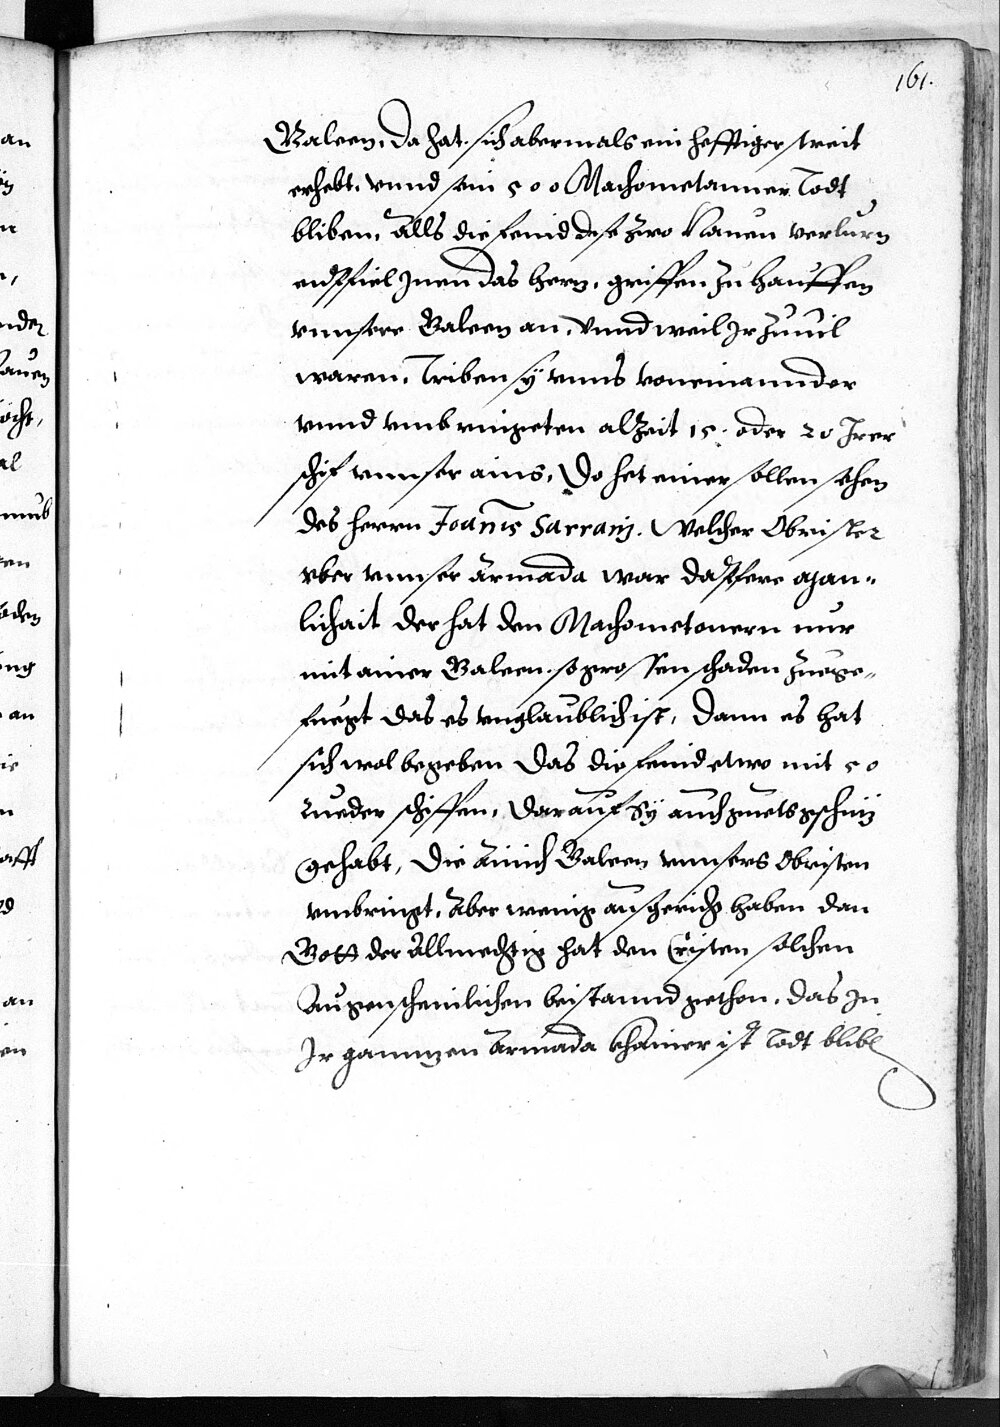 161.
Galeen, da hat sich abermals ein hefftiger streit
erhebt, vnnd sein 500 Machometanner Todt
bliben, Alls die feind dise zwo Nauen verlurn
entpfiel Inen das hertz, griffen zu hauffen
vnnsere Galeen an, vnnd weil Ir zuuil
waren, Triben sÿ vnns voneinannder
vnnd vmbringeten alzeit 15. oder 20 Irer
schif vnnser ains, Do het einer sollen sehen
des herrn Joannis Sarranj. Welcher Obrister
vber vnnser Armada war dapfere
lichait der hat den Machometonern nur
mit ainer Galeen so grossen schaden zuege-
fuegt das es vnglaublich ist, Dann es hat
sich wol begeben das die feind etwo mit 50
rueder schiffen, darauf Sÿ auch guets gschütz
gehabt, die ainich Galeen vnnsers Obristen
vmbringt, Aber wenig ausgericht haben dan
Gott der Allmechtig hat den Cristen solchen
Augenscheinlichen beistannd gethon, das In
Ir ganntzen Armada khainer ist Todt blibe
an
nder
auen
al
ten
oden
an
an
en